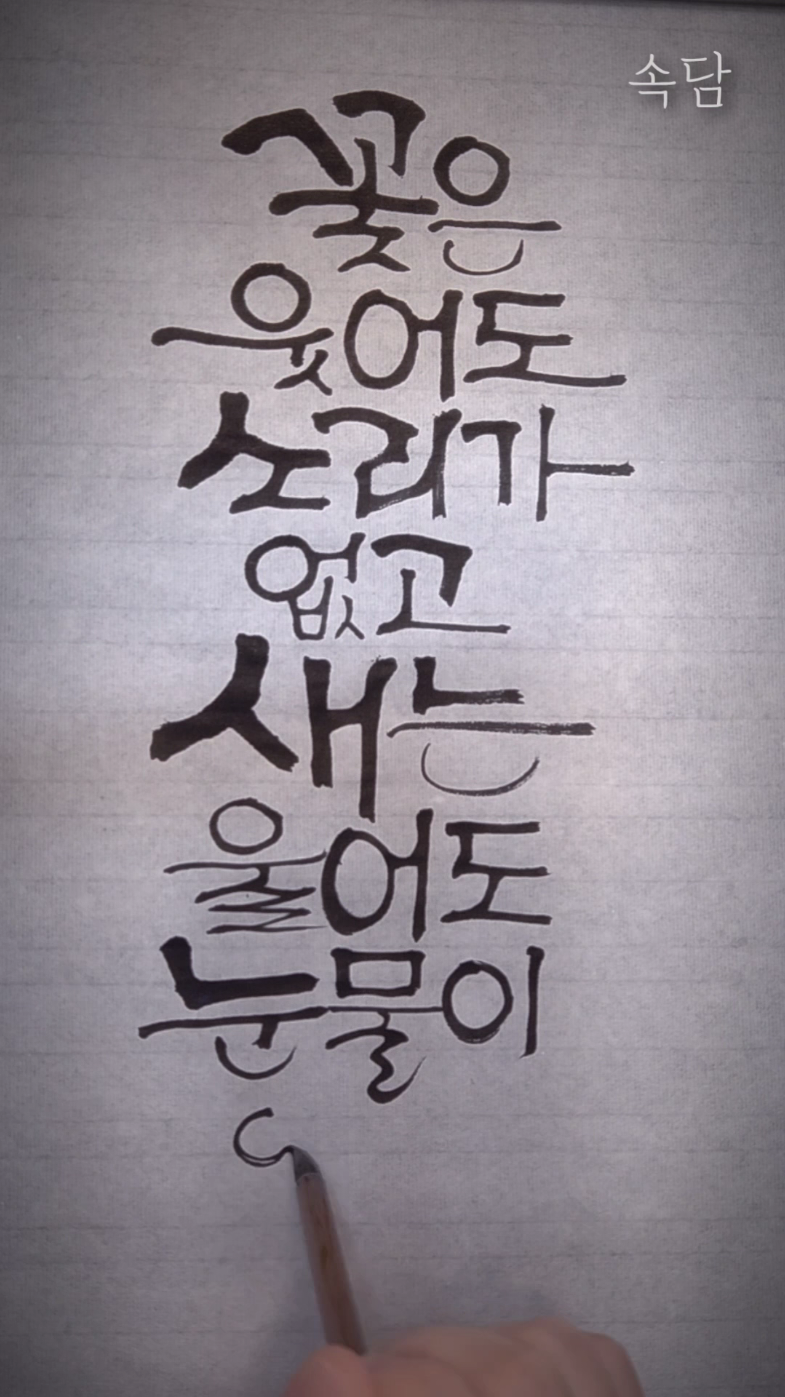 속담
꽃은
웃어도
소리가
없고
새는
울어도
눈물이